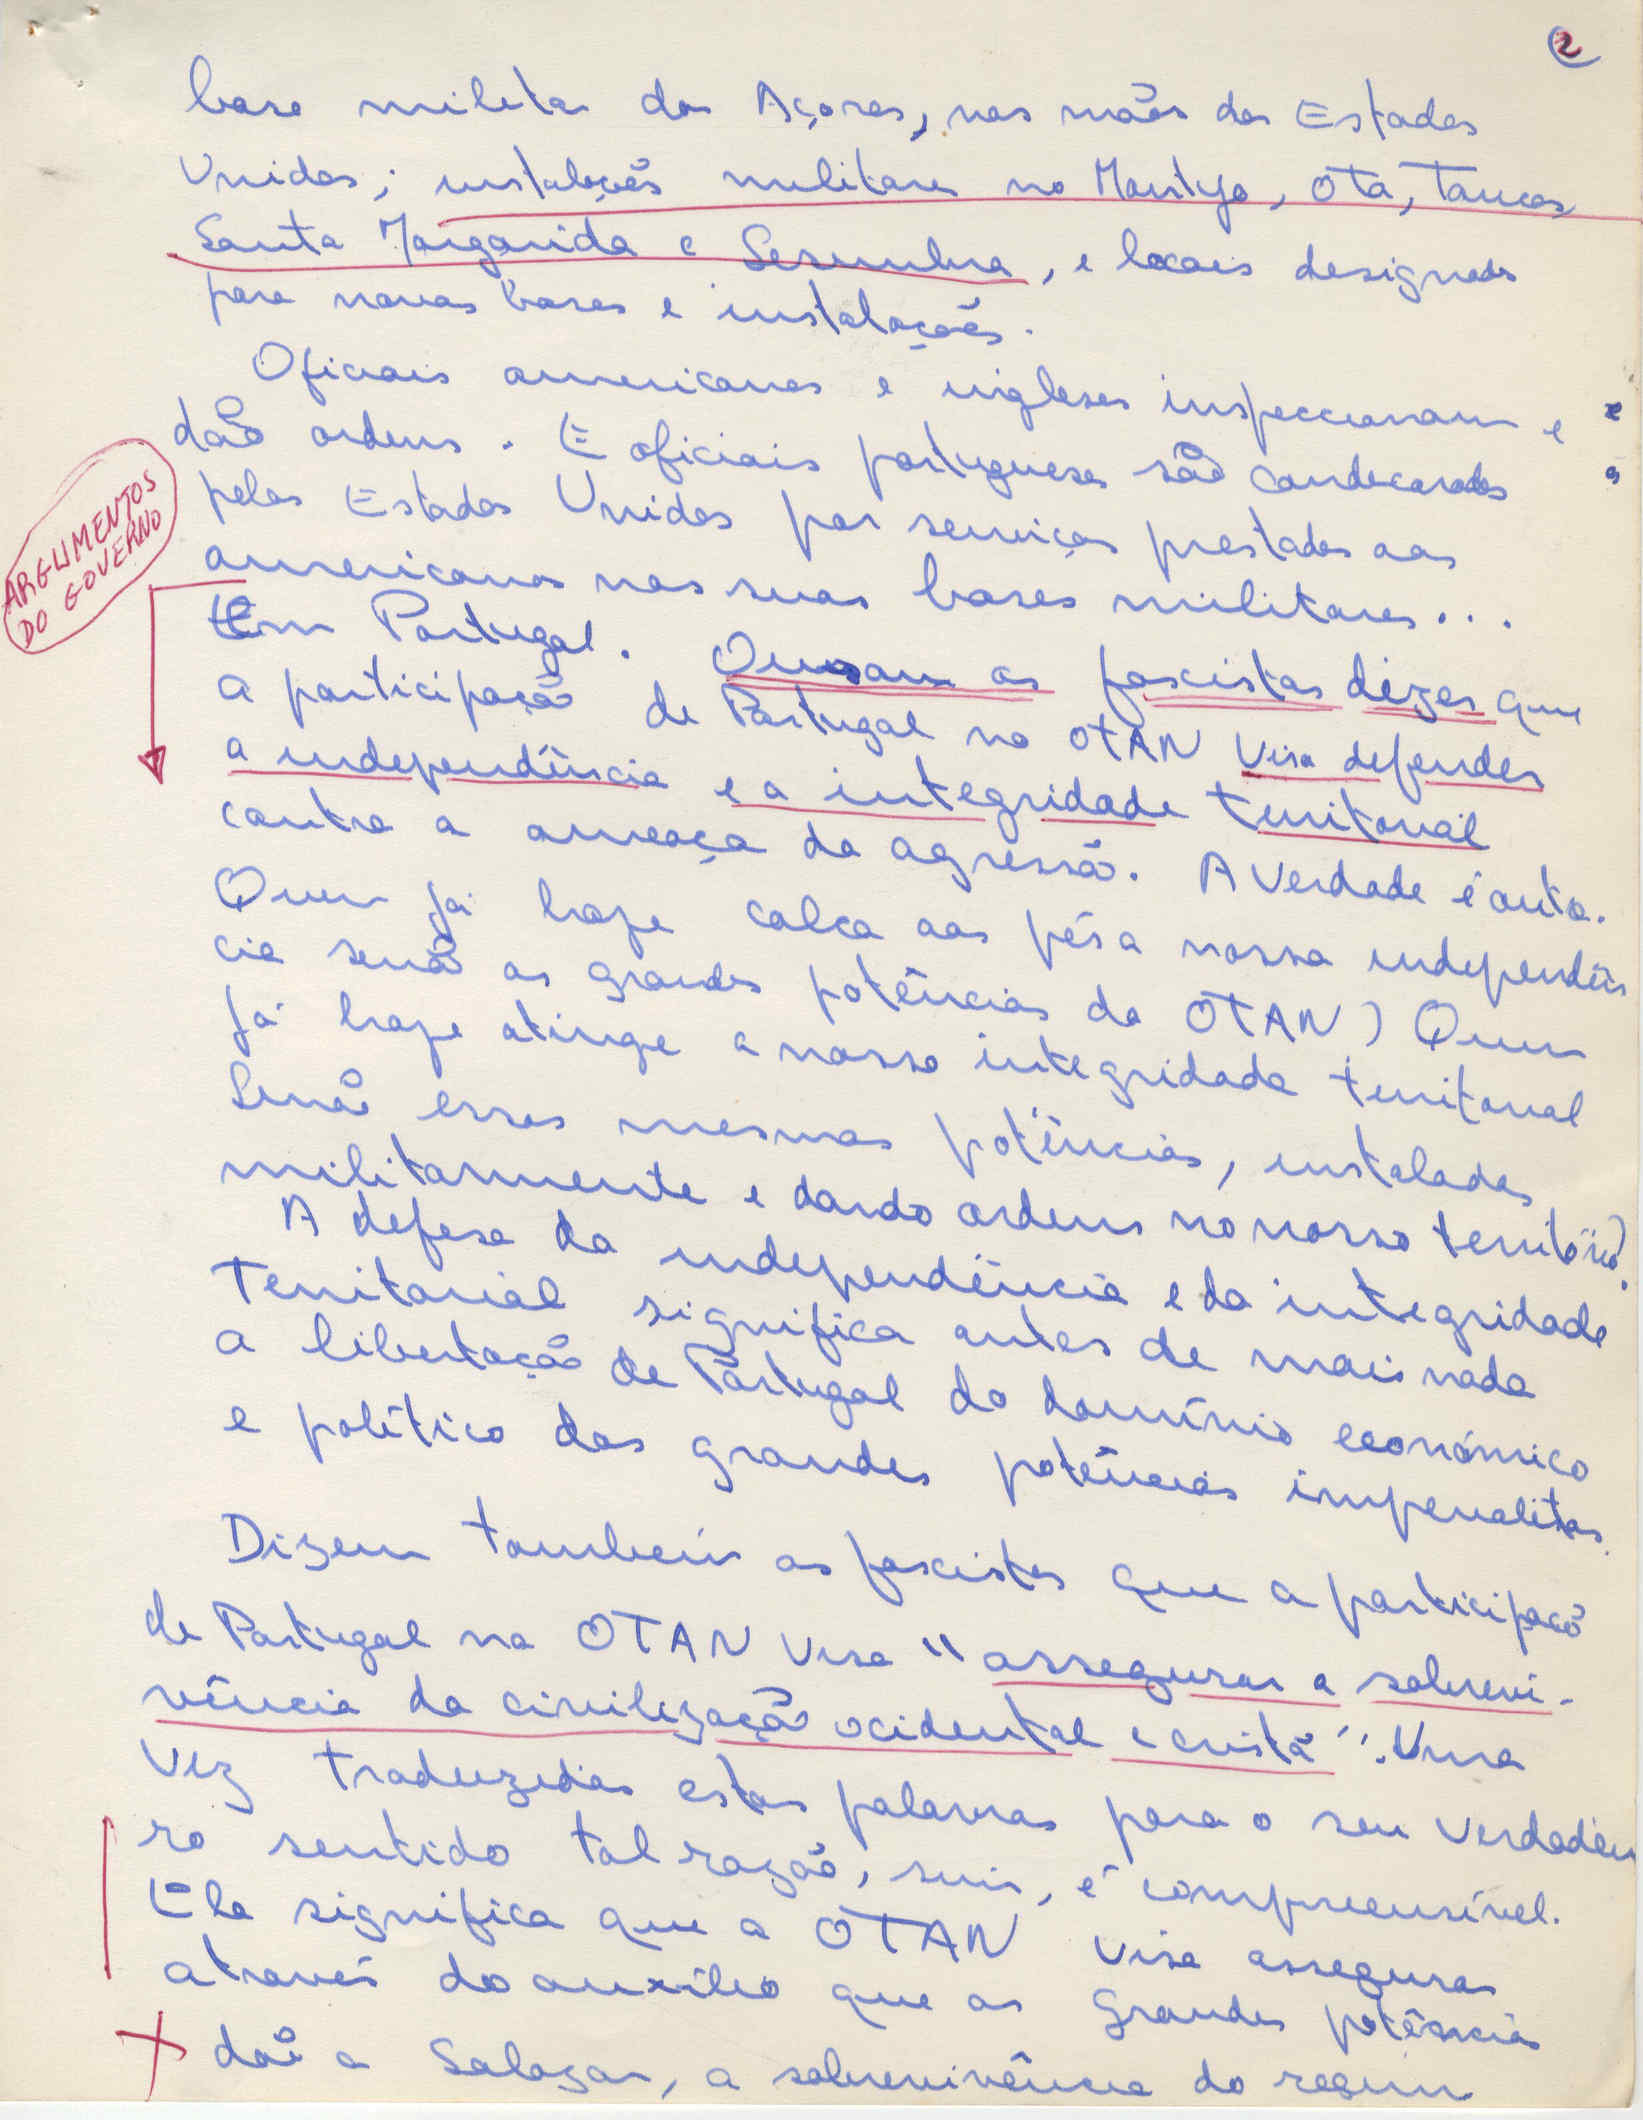 2
base militar dos Açores, nas mãos dos Estados
Unidos; instalações militares no Montijo, Ota, Tancos,
Santa Margarida e Sesimbra, e locais designados
para novas bases e instalações.
Oficiais americanos e ingleses inspeccionam e
dão ordens. E oficiais portugueses são condecorados
pelos Estados Unidos por serviços prestados aos
americanos nas suas bases militares...
Em Portugal. Ousam os fascistas dizer que
a participação de Portugal na OTAN visa defender
a independência e a integridade territorial
contra a ameaça da agressão. A verdade é outra.
Quem já hoje calca aos pés a nossa independên
cia senão as grandes potências da OTAN? Quem
já hoje atinge a nossa integridade territorial
senão essas mesmas potências, instaladas
militarmente e dando ordens no nosso território?
A defesa da independência e da integridade
Territorial significa antes de mais nada
a libertação de Portugal do domínio económico
e político das grandes potências imperialitas.
Dizem também os fascistas que a participação
de Portugal na OTAN visa "assegurar a sobrevi-
vência da civilização ocidental e cristã". Uma
vez traduzidas estas palavras para o seu verdadei
ro sentido tal razão, sim, é compreensível.
Ela significa que a OTAN visa assegurar
através do auxílio que as grandes potências
dão a Salazar, a sobrevivência do regim
ARGUMENTOS
DO GOVERNO